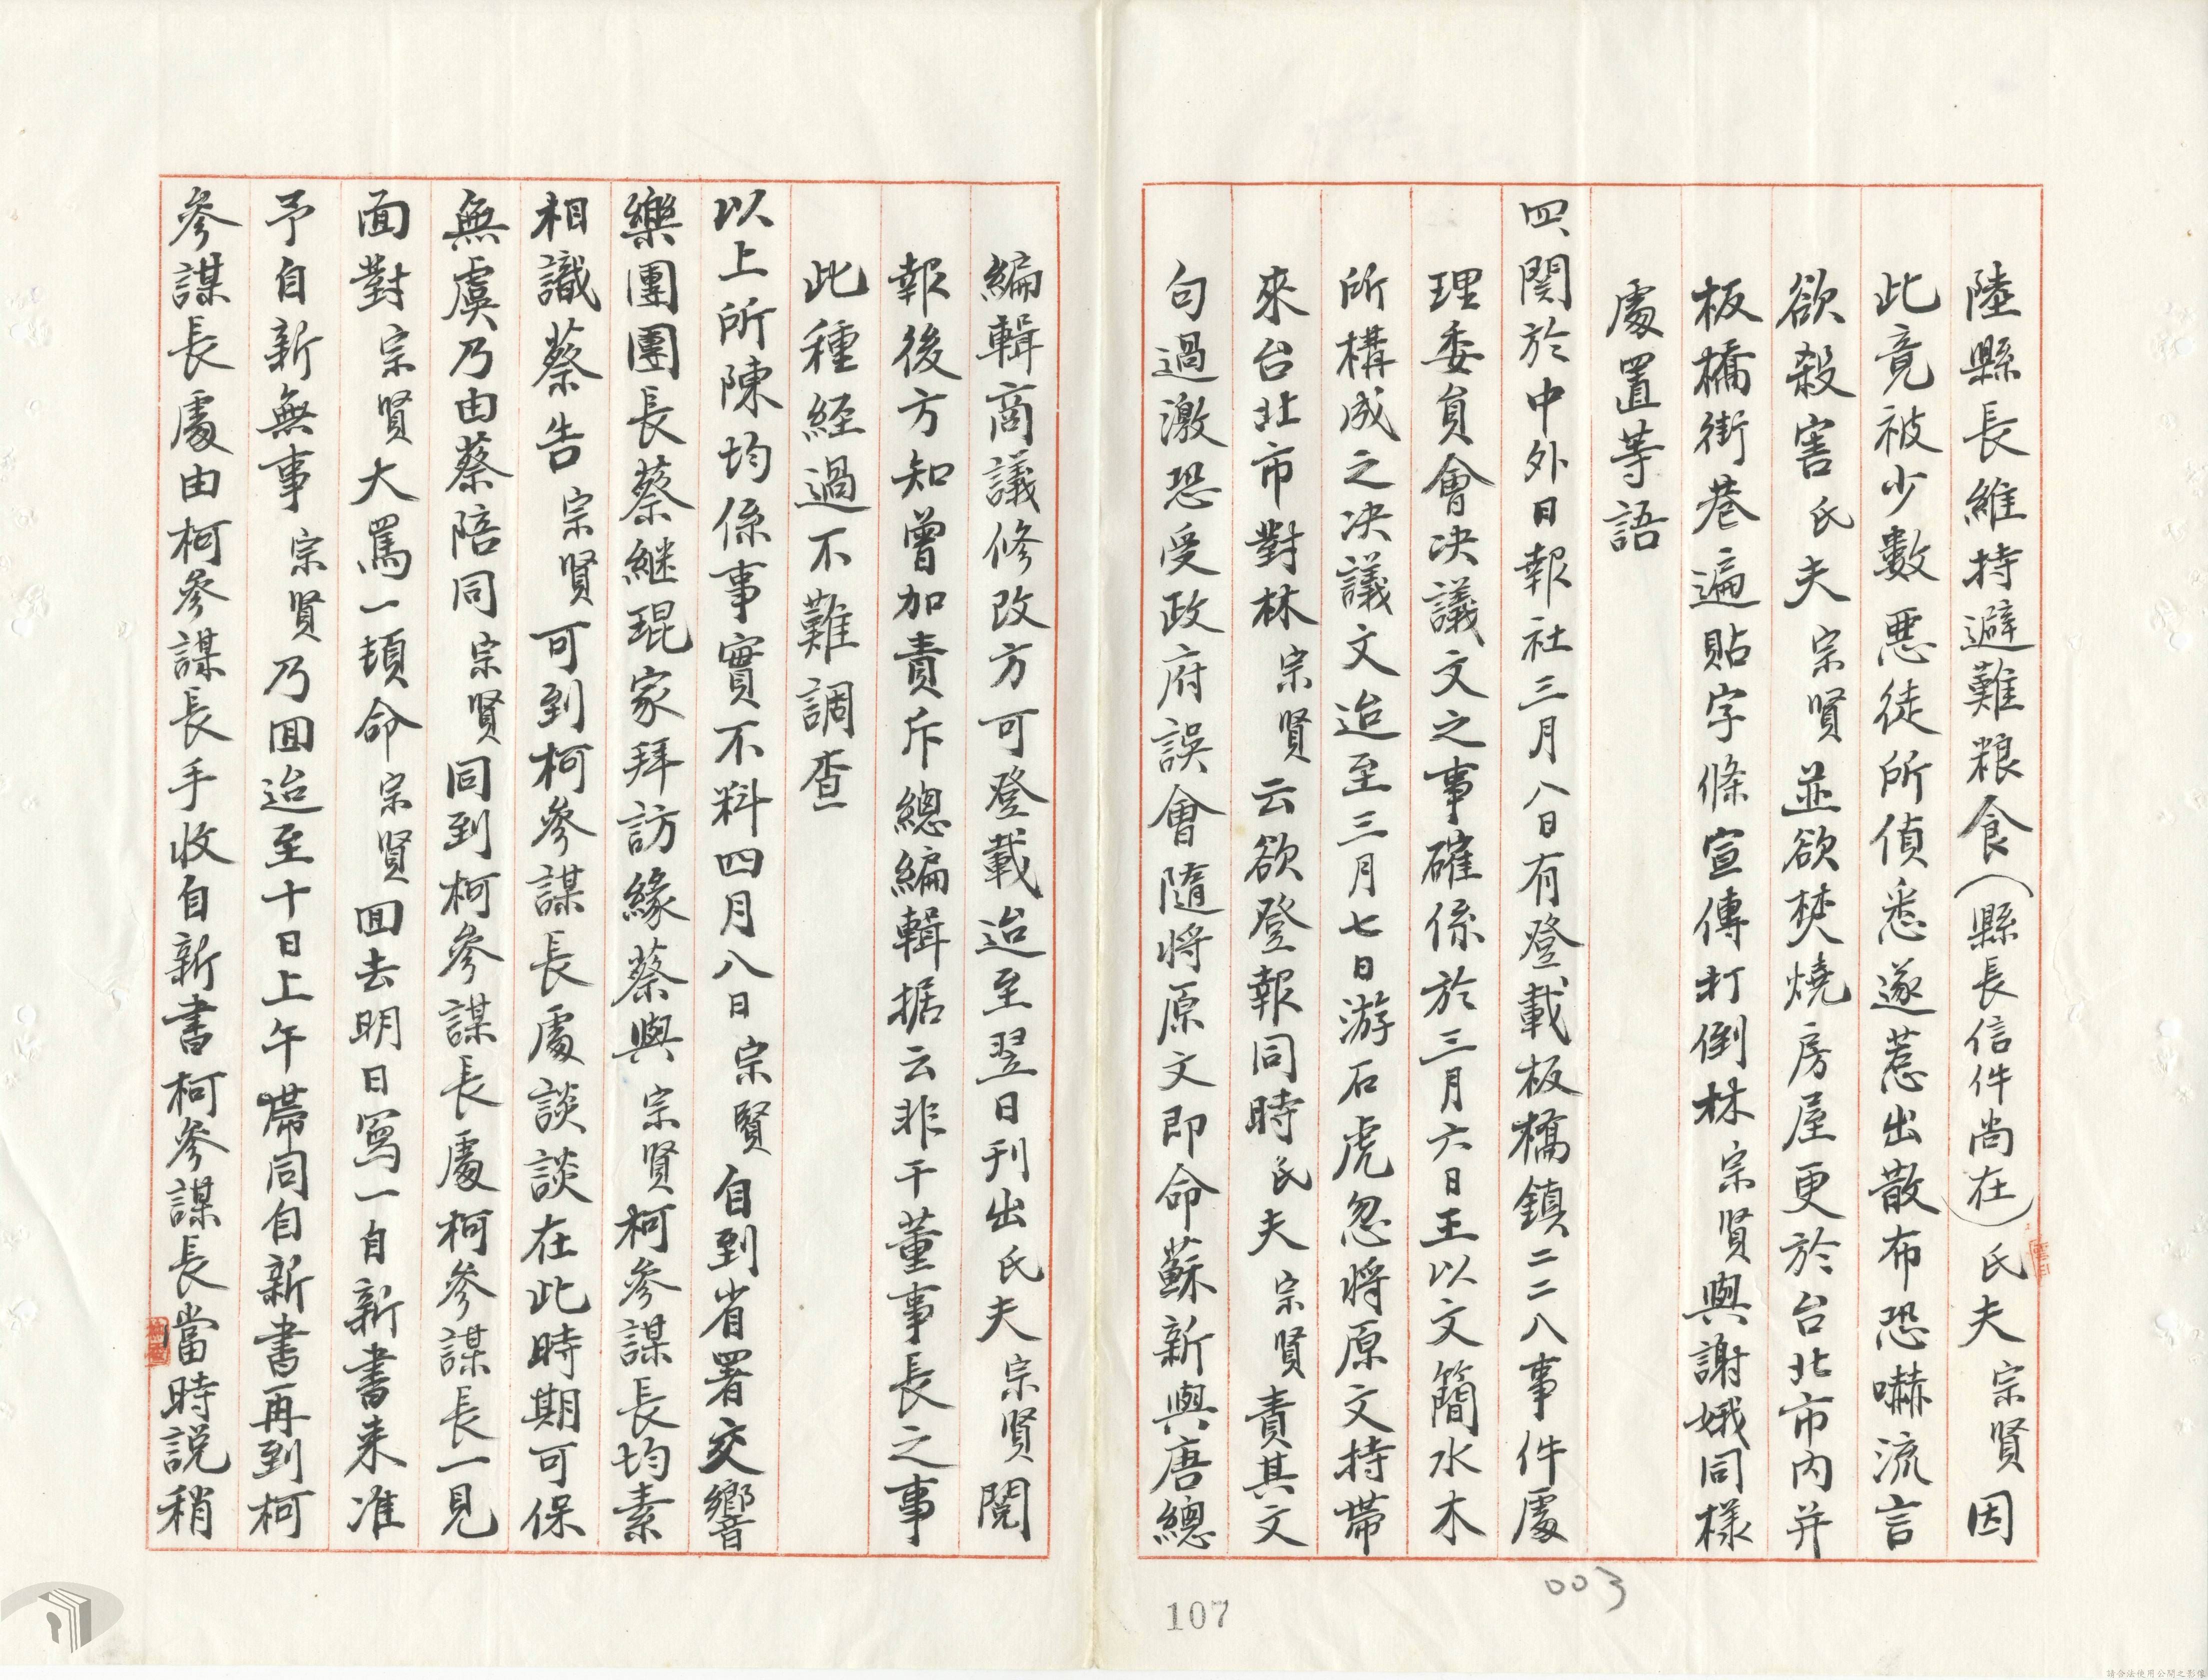 陸縣長維持避難粮食(縣長信件尚在)氏夫宗賢因
此竟被少數惡徒所偵悉遂惹出散布恐嚇流言
欲殺害氏夫宗賢並欲焚燒房屋更於台北市內并
板橋街巷遍貼字條宣傳打倒林宗賢與謝娥同樣
處置等語
四、関於中外日報社三月八日有登載板橋鎮二二八事件處
理委員會决議文之事確係於三月六日王以文簡水木
所構成之决議文迨至三月七日游石虎忽将原文持帶
來台北市對林宗賢云欲登報同時氏夫宗賢責其文
句過激恐受政府誤會隨将原文即命蘇新與唐總
編輯商議修改方可登載迨至翌日刊出氏夫宗賢閱
報後方知曾加責斥總編輯据云非干董事長之事
此種經過不難調查
以上所陳均係事實不料四月八日宗賢自到省署交響
樂團團長蔡継琨家拜訪緣蔡與宗賢柯參謀長均素
相識蔡告宗賢可到柯參謀長處談談在此時期可保
無虞乃由蔡陪同宗賢同到柯參謀長處柯參謀長一見
面對宗賢大罵一頓命宗賢囬去明日寫一自新書来准
予自新無事宗賢乃囬迨至十日上午帶同自新書再到柯
參謀長處由柯參謀長手收自新書柯參謀長當時説稍
003
107
請合法使用公開之影像